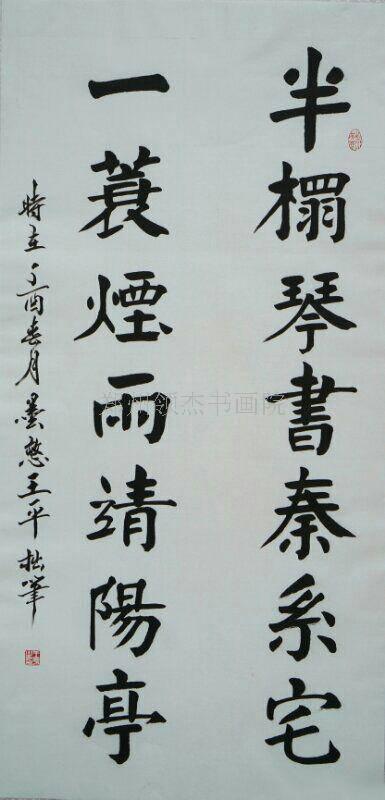 半榻琴書秦系宅
一蓑煙雨靖陽亭
時在丁酉春月墨憨王平拙筆
郑州领杰书画院